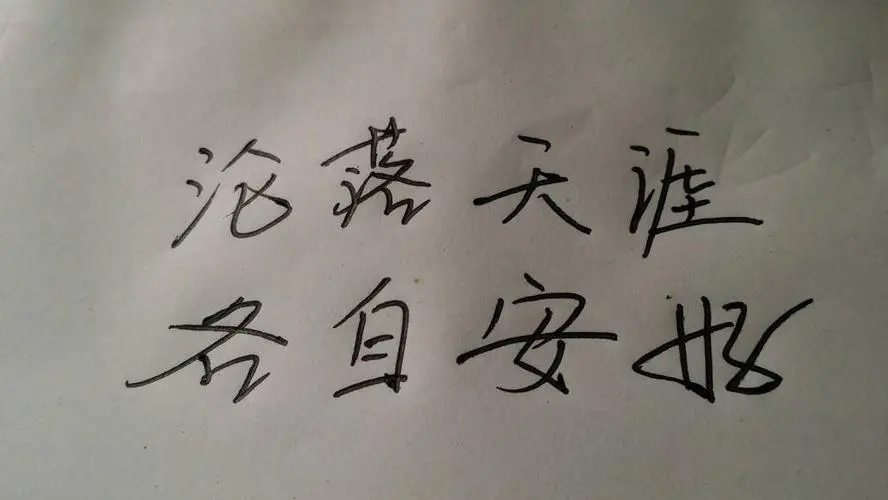 沦落天涯
各自安好